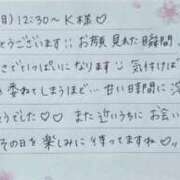 日) 12:30～ K様♡
とうございます!! お顔見れた瞬間
さでいっぱいになります 気付けば
委ねてしまうほど… 甘い時間に
とうでした♡♡ また近いうちに お会い
その日を楽しみに待ってますね♡